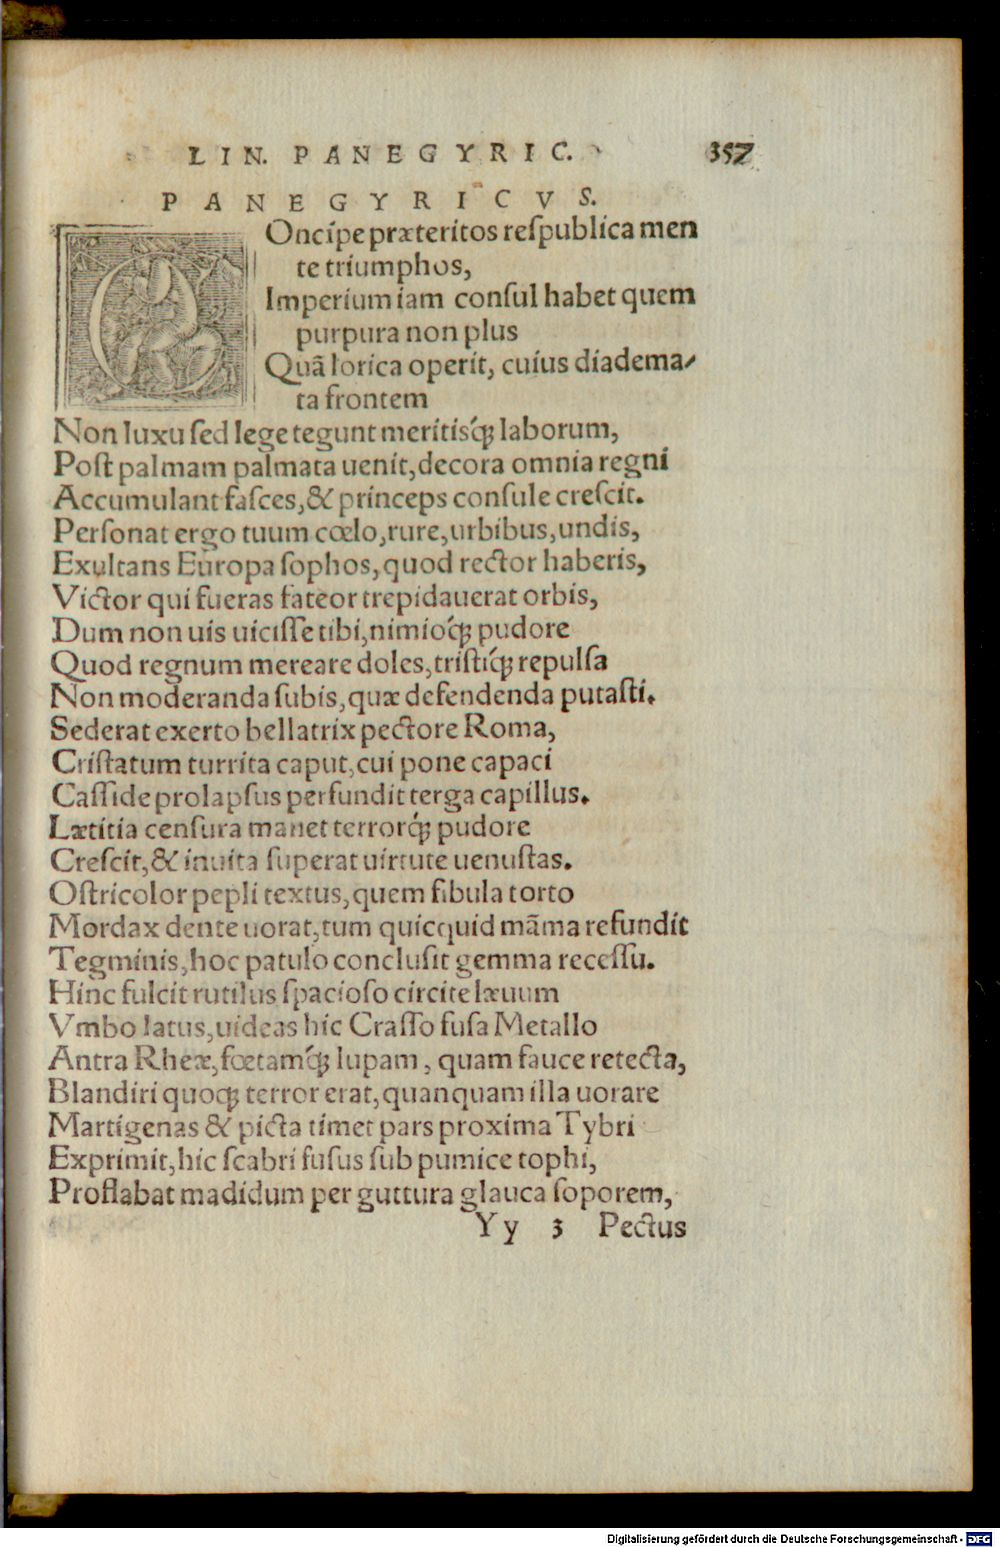 LIN. PANEGYRIC. 357
PANEGYRICVS.
COncipe præteritos reſpublica men
te triumphos,
Imperium iam conſul habet quem
purpura non plus
Quã lorica operit, cuius diadema/
ta frontem
Non luxu ſed lege tegunt meritisq́ꝫ laborum,
Poſt palmam palmata uenit, decora omnia regni
Accumulant faſces, & princeps conſule creſcit.
Perſonat ergo tuum cœlo, rure, urbibus, undis,
Exultans Europa ſophos, quod rector haberis,
Victor qui fueras fateor trepidauerat orbis,
Dum non uis uiciſſe tibi, nimioq́ꝫ pudore
Quod regnum mereare doles, triſtiq́ꝫ repulſa
Non moderanda ſubis, quæ defendenda putaſti.
Sederat exerto bellatrix pectore Roma,
Criſtatum turrita caput, cui pone capaci
Caſſide prolapſus perfundit terga capillus.
Lætitia cenſura manet terrorq́ꝫ pudore
Creſcit, & inuita ſuperat uirtute uenuſtas.
Oſtricolor pepli textus, quem fibula torto
Mordax dente uorat, tum quicquid mãma refundit
Tegminis, hoc patulo concluſit gemma receſſu.
Hinc fulcit rutilus ſpacioſo circite læuum
Vmbo latus, uideas hic Craſſo fuſa Metallo
Antra Rheæ, fœtamq́ꝫ lupam, quam fauce retecta,
Blandiri quoqꝫ terror erat, quanquam illa uorare
Martigenas & picta timet pars proxima Tybri
Exprimit, hic ſcabri fuſus ſub pumice tophi,
Proflabat madidum per guttura glauca ſoporem,
Yy 3 Pectus
Digitalisierung gefördert durch die Deutsche Forschungsgemeinschaft - DFG